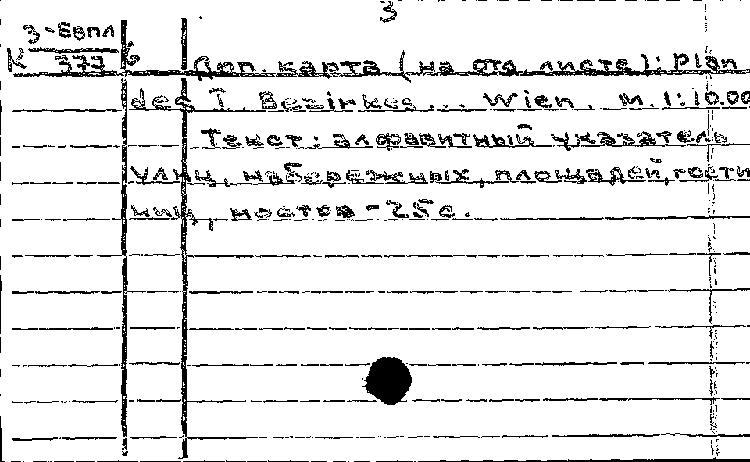 3
3-Евпл
К 377 б Доп. карта (на отд. листе): Plan
des I. Bezirkes... Wien. М. 1:10.00
Текст: алфавитный указатель
улиц, набережных, площадей, гости
ниц, мостов - 25 с.